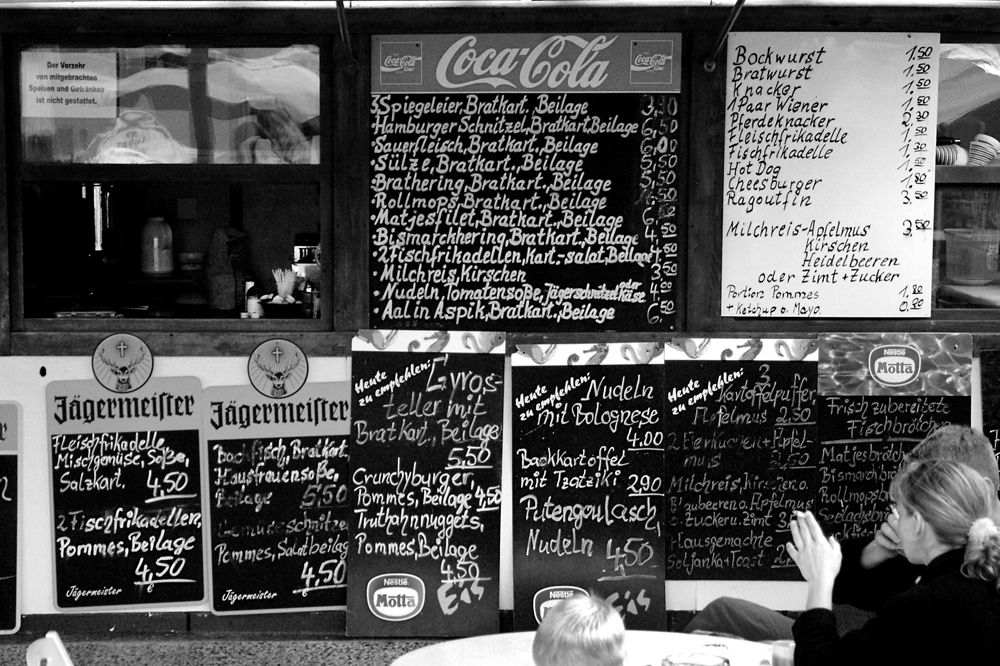 Der Verzehr
von mitgebrachten
Speisen und Getränken
ist nicht gestattet.
Coca-Cola
Coca-Cola
Coca-Cola
3 Spiegeleier, Bratkart., Beilage
Hamburger Schnitzel, Bratkart, Beilage 6,50
Sauerfleisch, Bratkart., Beilage
Sülze, Bratkart., Beilage
Brathering, Bratkart., Beilage
Rollmops, Bratkart., Beilage
Matjesfilet, Bratkart., Beilage
Bismarckhering, Bratkart., Beilage
2 Fischfrikadellen, Kart.-salat, Beilage
Milchreis, Kirschen
Nudeln, Tomatensoße, Jägerschnitzel oder Käse
Aal in Aspik, Bratkart., Beilage 6,50
Bockwurst 1.50
Bratwurst 1.50
Knacker 1.50
1 Paar Wiener 1.50
Pferdeknacker 2.30
Fleischfrikadelle 1.50
Fischfrikadelle 1.30
Hot Dog 1.50
Cheesburger 1.80
Ragoutfin 3.50
Milchreis-Apfelmus 3.50
Kirschen
Heidelbeeren
oder Zimt + Zucker
Portion Pommes 1.80
+ Ketchup o. Mayo. 0.30
Jägermeister
Fleischfrikadelle,
Mischgemüse, Soße,
Salzkart. 4,50
2 Fischfrikadellen,
Pommes, Beilage
4,50
Jägermeister
Jägermeister
Backfisch, Bratkart.
Hausfrauensoße,
Beilage 5,50
Gemüseschnitzel
Pommes, Salatbeilage
4,50
Jägermeister
Heute
zu empfehlen:
Gyros-
teller mit
Bratkart., Beilage
5,50
Crunchyburger,
Pommes, Beilage 4,50
Truthahnnuggets,
Pommes, Beilage
4,50
Nestlé
Motta
Eis
Heute
zu empfehlen:
Nudeln
mit Bolognese
4.00
Backkartoffel
mit Tzatziki 2,90
Putengoulasch,
Nudeln 4,50
Eis
Heute
zu empfehlen:
3
Kartoffelpuffer
Apfelmus 2,50
2 Eierkuchen + Apfel-
mus 2,50
Milchreis, Kirschen o.
Blaubeeren o. Apfelmus
o. Zucker u. Zimt
Hausgemachte
Soljanka + Toast
Nestlé
Motta
Frisch zubereitete
Fischbrötchen
Matjesbrötch
Bismarckbrö
Rollmops